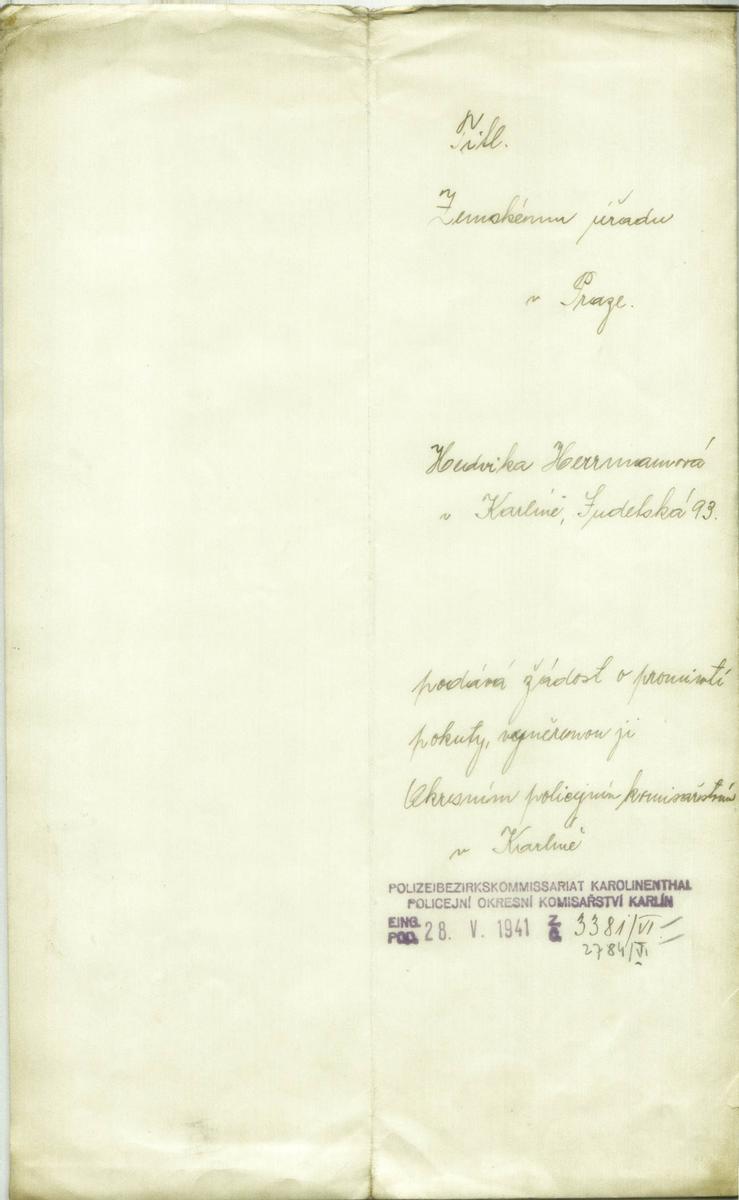 Titl.
Zemskému úřadu
v Praze.
Hedvika Herrmannová
v Karlíně, Sudetská 93.
podává žádost o prominutí
pokuty, vyměřenou jí
Okresním policejním komisařstvím
v Karlíně
POLIZEIBEZIRKSKOMMISSARIAT KAROLINENTHAL
POLICEJNÍ OKRESNÍ KOMISAŘSTVÍ KARLÍN
EING. POD. 28. V. 1941 Z. Č. 3381/VI.
2784/VI.